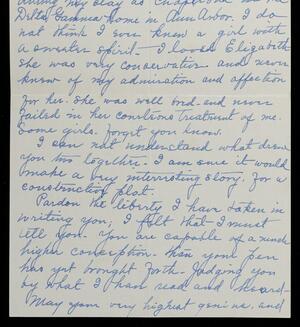 during my stay as chaperone
Delta Gamma home in Ann Arbor. I do
not think I ever knew a girl with
a sweeter spirit - I loved Elizabeth
she was very conservative and never
knew of my admiration and affection
for her. She was well bred and never
failed in her courteous treatment of me.
Some girls forget you know.
I can not understand what drew
you two together. I am sure it would
make a very interesting story, for a
construction plot.
Pardon the liberty I have taken in
writing you, I felt that I must
tell you. You are capable of a much
higher conception than your pen
has yet brought forth - Judging you
by what I have read and heard -
May your very highest genius, and